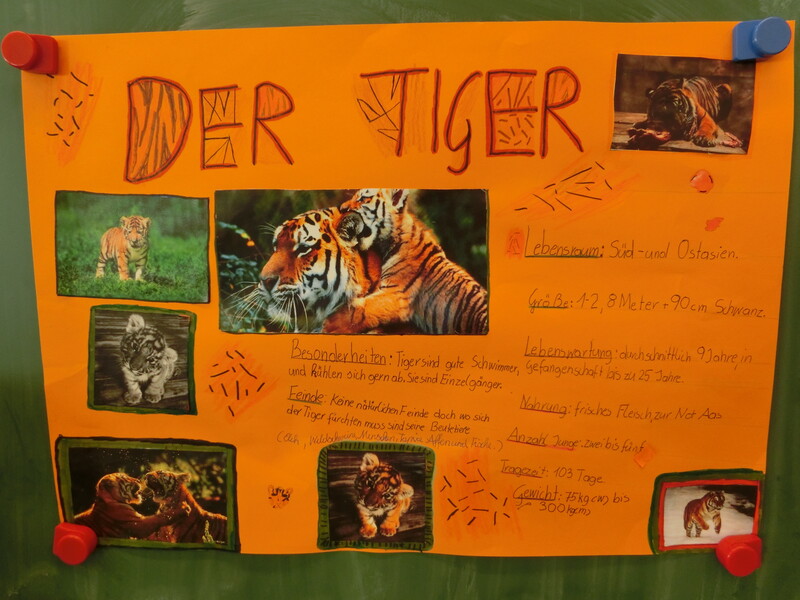 DER TIGER
Lebensraum: Süd- und Ostasien.
Größe: 1-2,8 Meter + 90cm Schwanz.
Lebenswartung: durchschnittlich 9 Jahre, in
Gefangenschaft bis zu 25 Jahre.
Nahrung: frisches Fleisch, zur Not Aas
Anzahl Junge: zwei bis fünf
Tragezeit: 103 Tage
Gewicht: 75kg bis
300kg
Besonderheiten: Tiger sind gute Schwimmer,
und kühlen sich gern ab. Sie sind Einzelgänger.
Feinde: Keine natürlichen Feinde doch wo sich
der Tiger fürchten muss sind seine Beutetiere
(Elch, Menschen, Affen und)